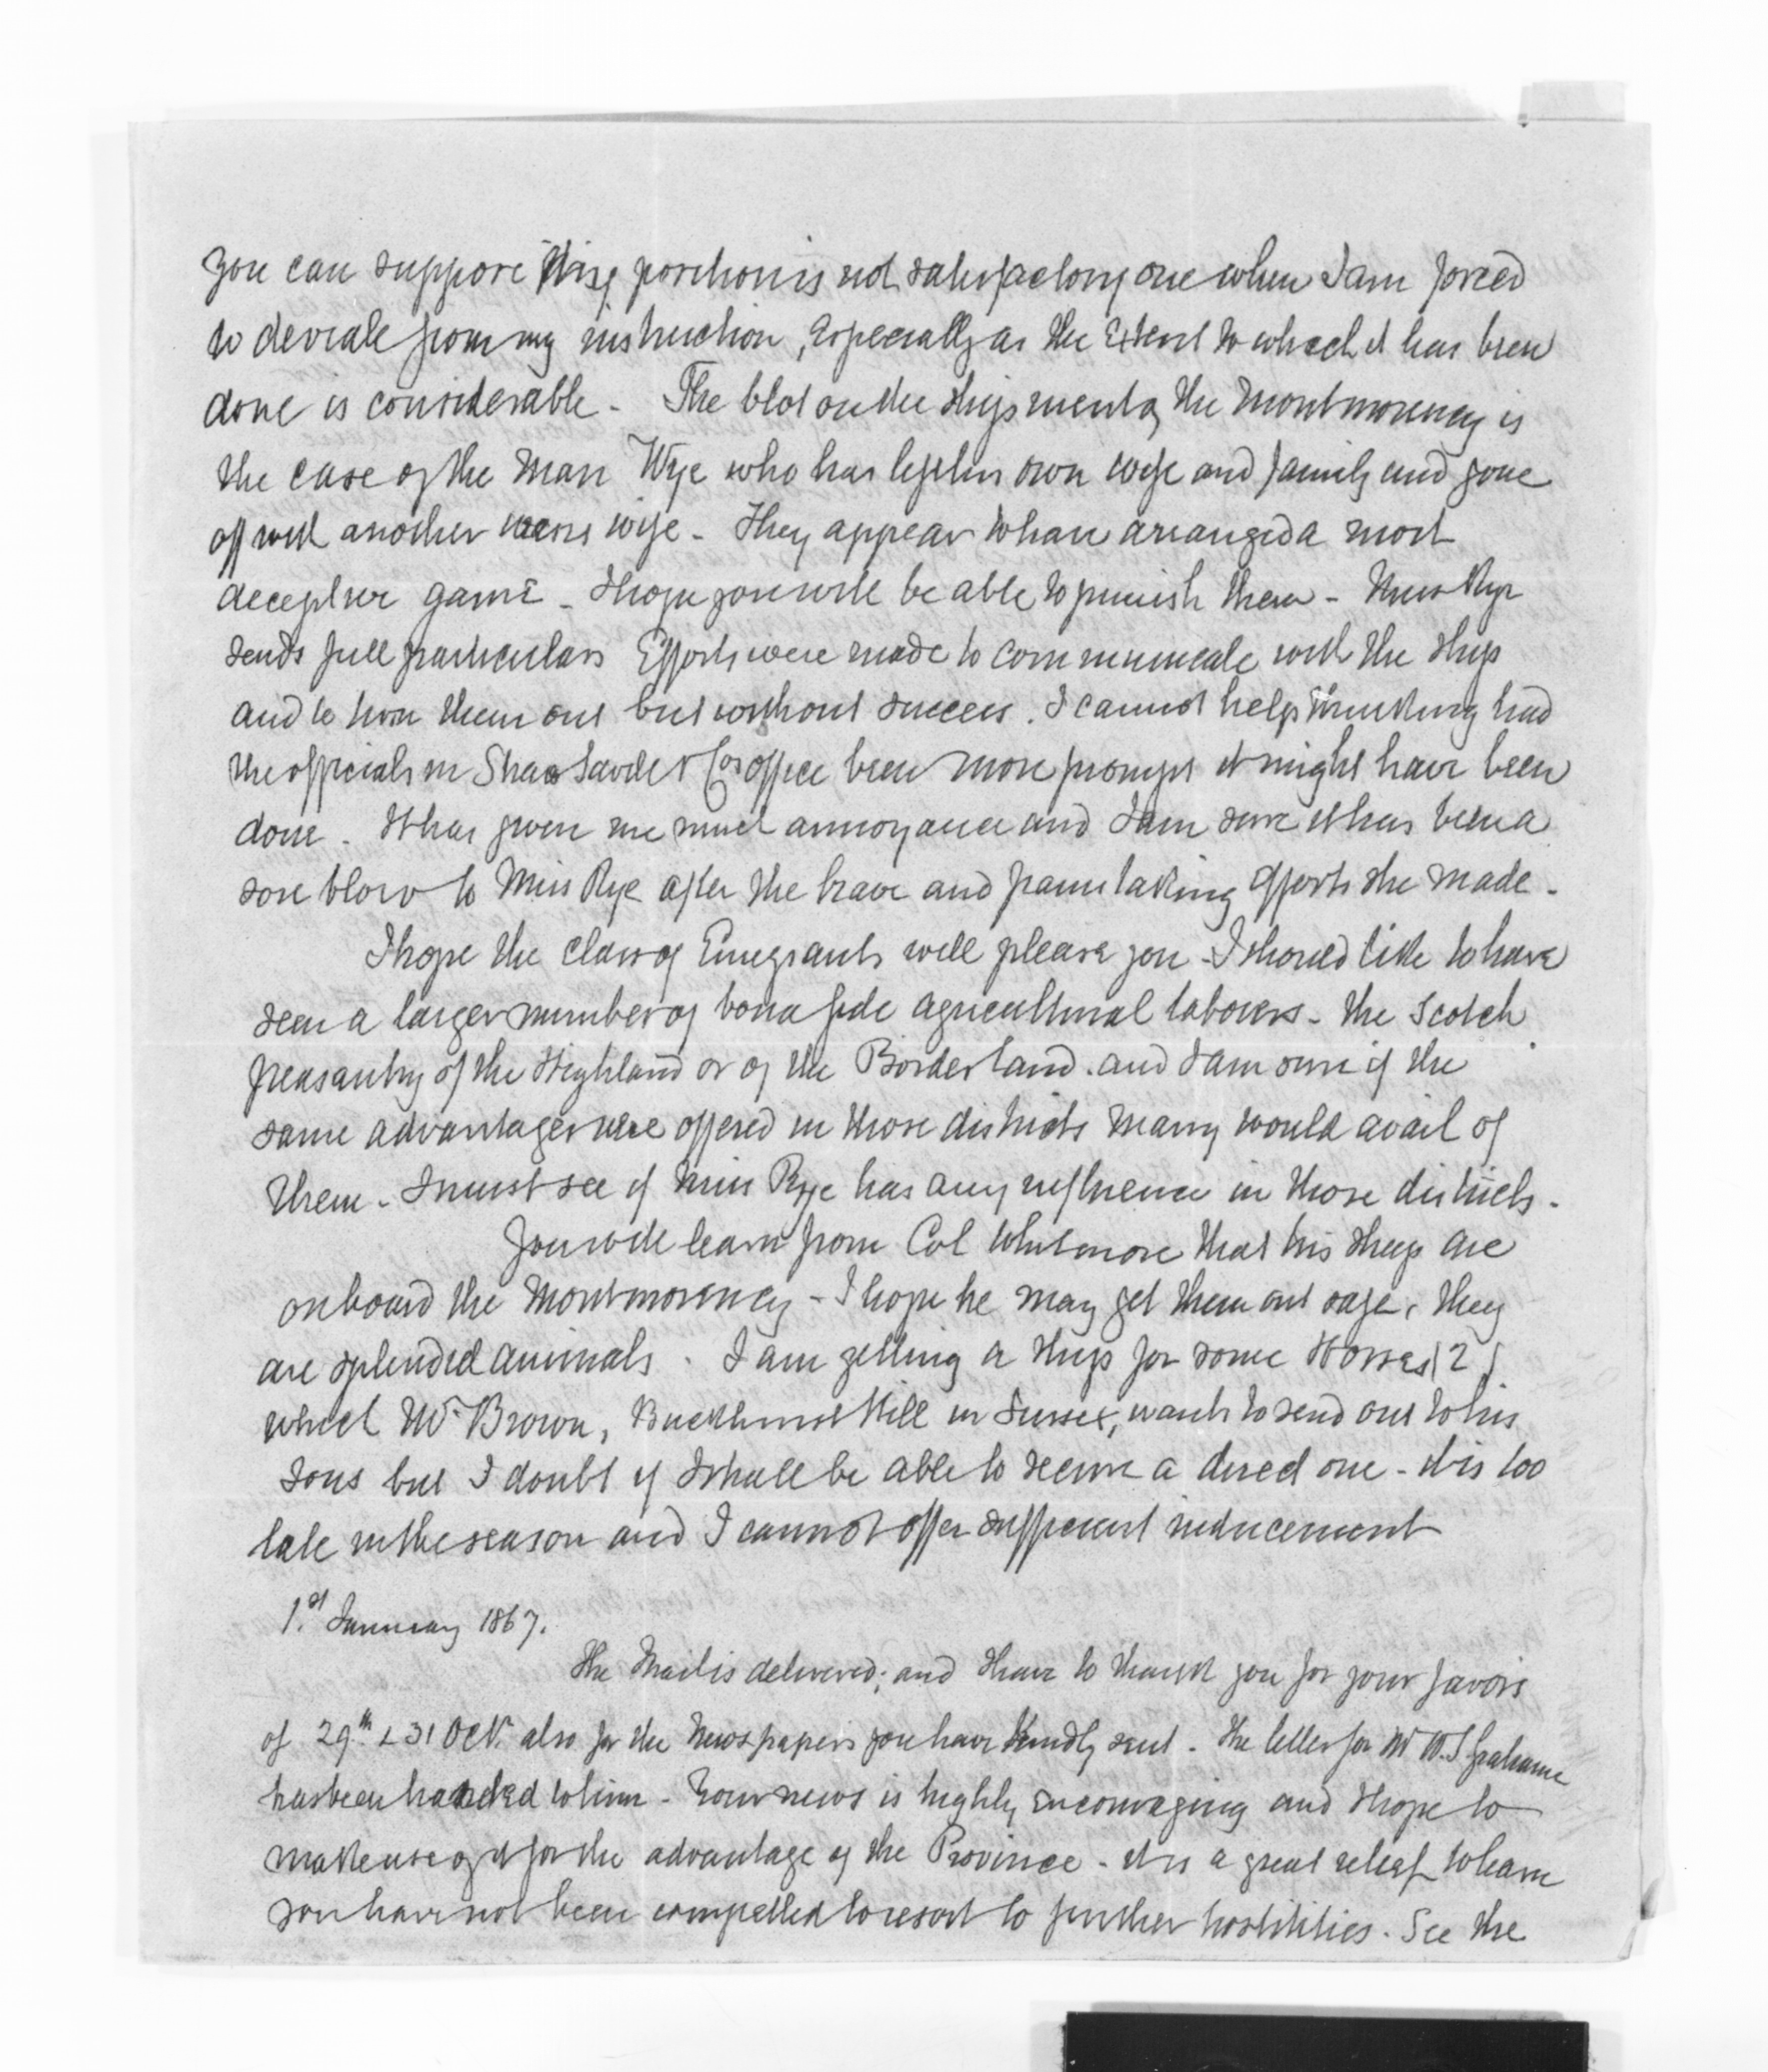 you can suppose my position is not satisfactory one when I am forced
to deviate from my instruction, Especially as the Extent to which it has been
done is considerable - The blot on the shipment of the Montmorency is
the case of the man Wye who has left his own wife and family and gone
off with another mans wife - They appear to have arranged a most
deceptive game - I hope you will be able to punish them - Miss Rye
sends full particulars Efforts were made to communicate with the ship
and to turn them out but without success. I cannot help thinking had
the officials in Shaw Savill & Cos office been more prompt it might have been
done. It has given me much annoyance and I am sure it has been a
sore blow to Miss Rye after the brave and painstaking efforts she made -
I hope the class of Emigrants will please you - I should like to have
seen a larger number of bona fide agricultural laborers - the Scotch
peasantry of the Highland or of the Border land. and I am sure if the
same advantages were offered in those districts many would avail of
them - I must see if Miss Rye has any influence in those districts -
You will learn from Col Whitmore that his sheep are
on board the Montmorency - I hope he may get them out safe, they
are splendid animals. I am getting a ship for some Horses (2)
which Mr Brown, Buckhurst Hill in Sussex, wants to send out to his
sons but I doubt if I shall be able to secure a direct one - it is too
late in the season and I cannot offer sufficient inducement
1.st January 1867.
The Mail is delivered; and I have to thank you for your favors
of 29.th & 31 Oct. also for the Newspapers you have kindly sent - The letter for Mr W. S. Grahame
has been handed to him - Your news is highly encouraging and I hope to
make use of it for the advantage of the Province - it is a great relief to learn
you have not been compelled to resort to further hostilities. See the